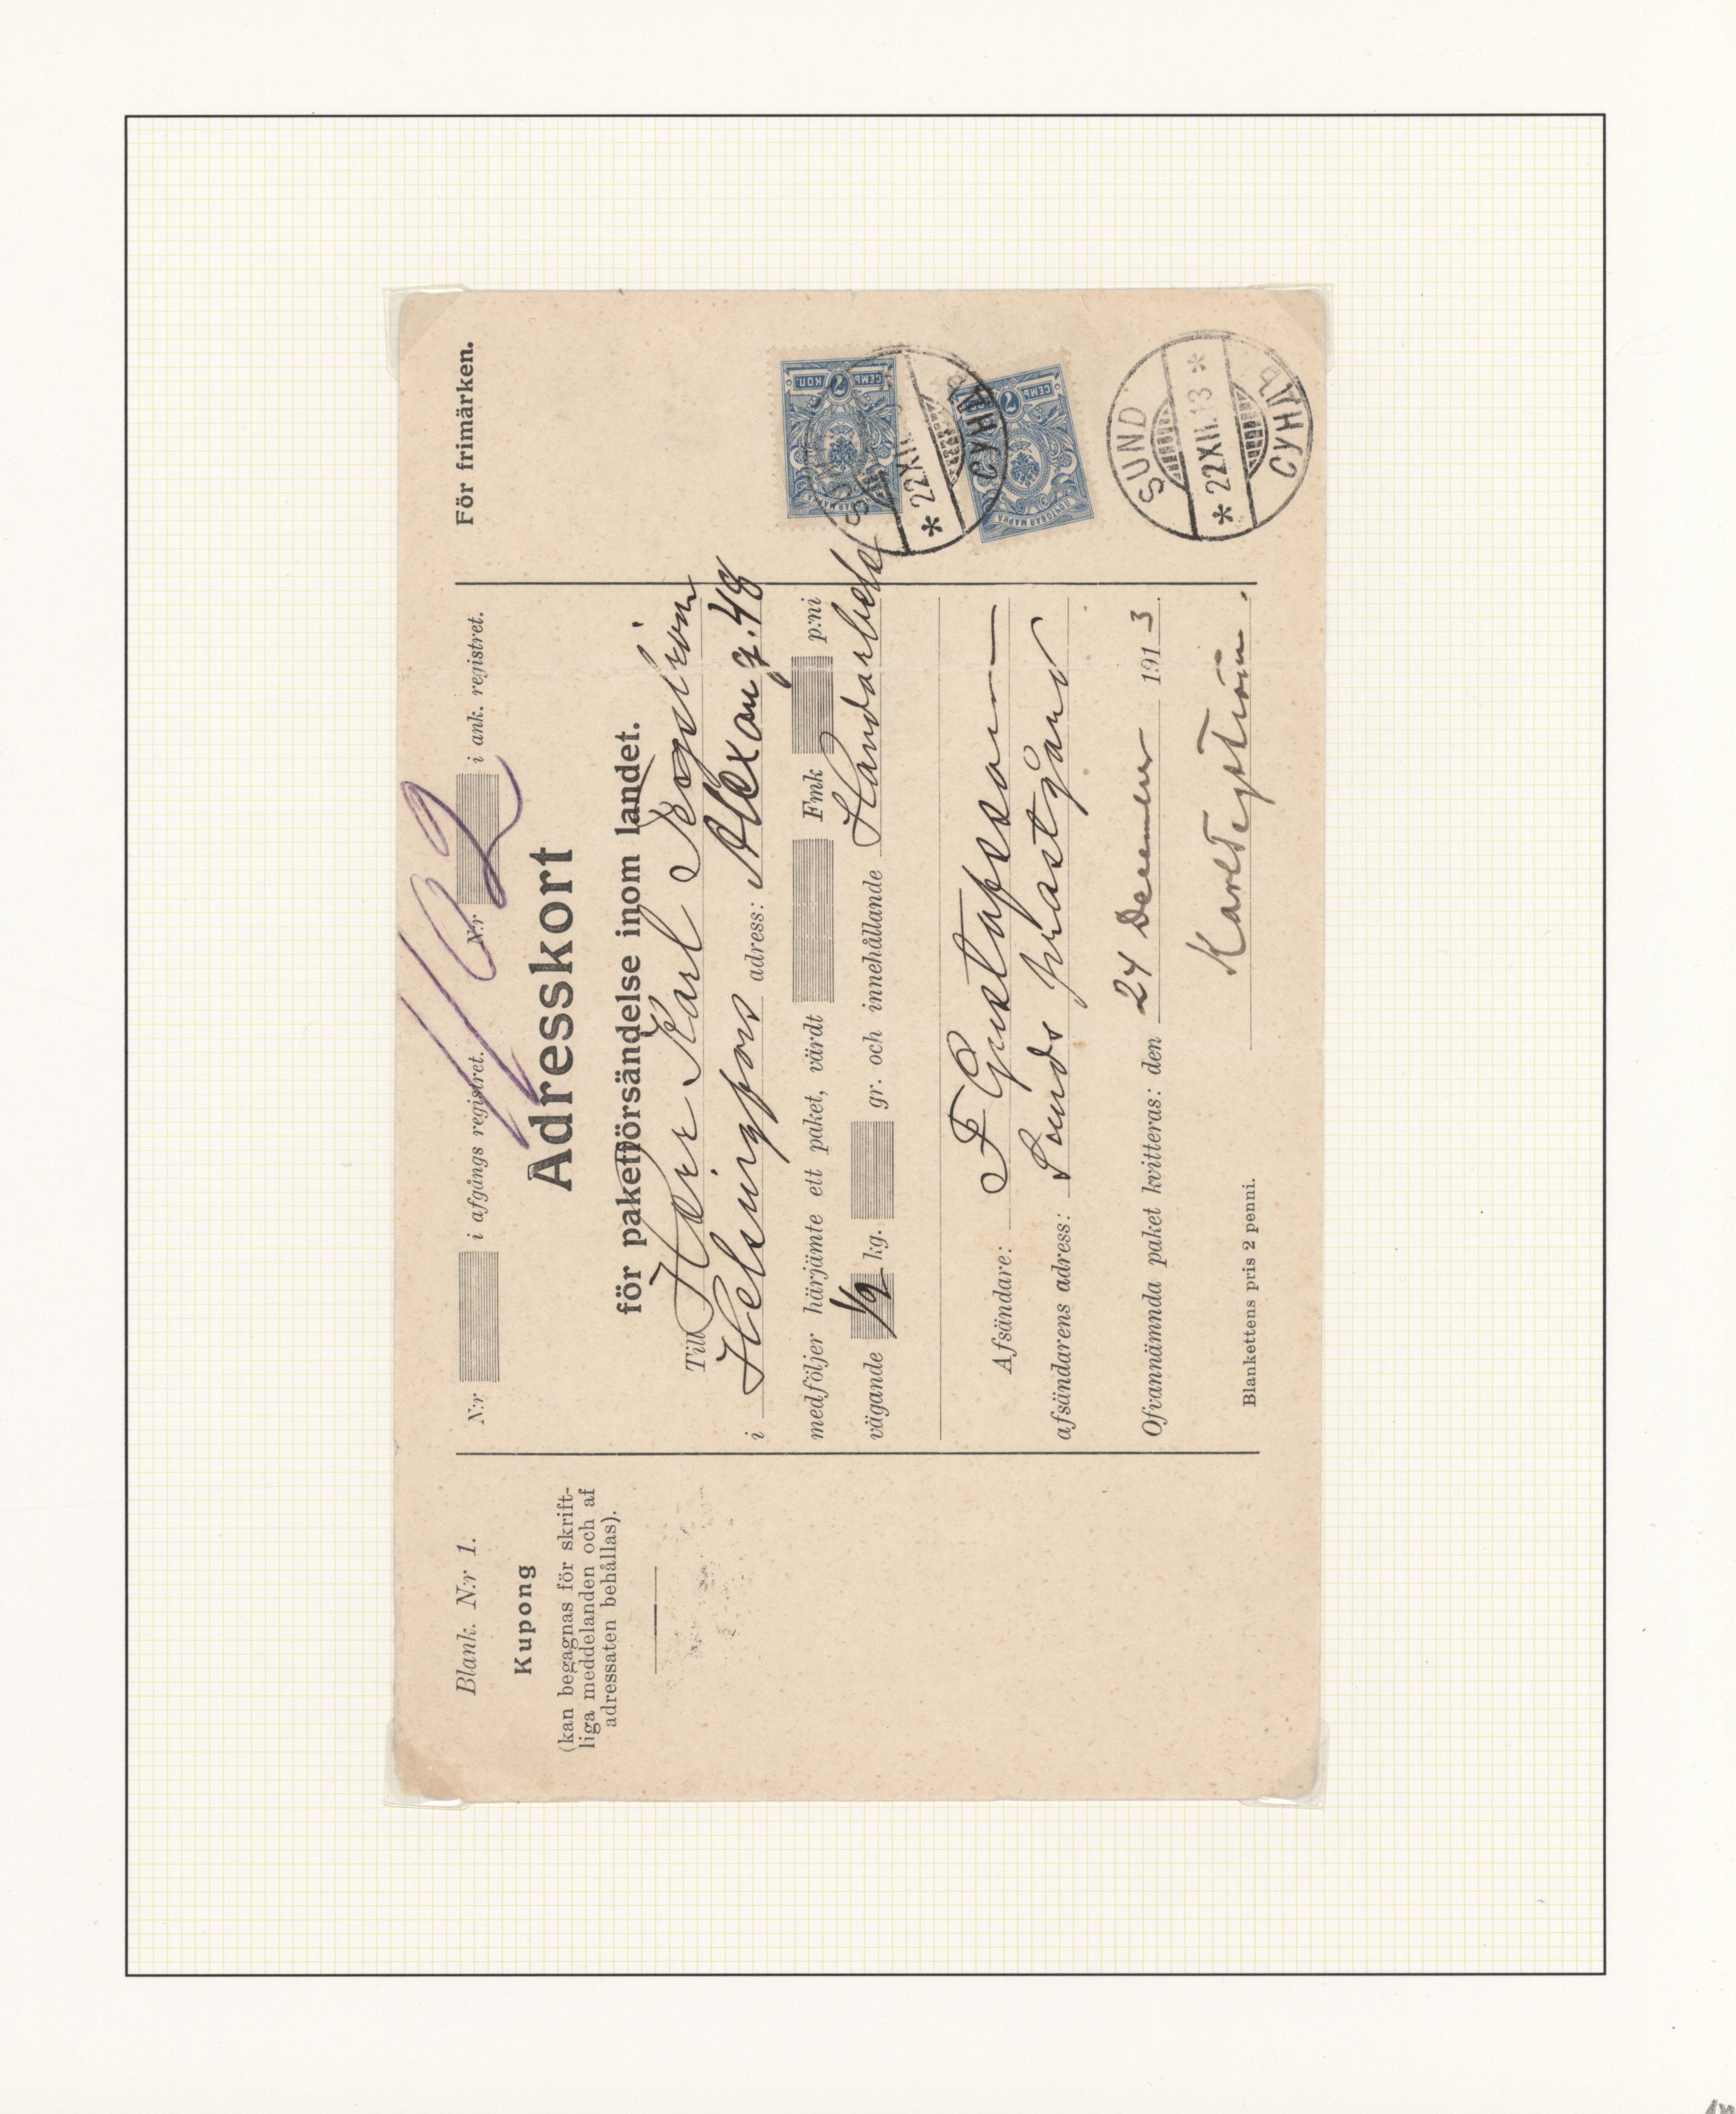 Blank. N:r 1.
Kupong
(kan begagnas för skrift-
liga meddelanden och af
adressaten behållas).
N:r i afgångs registret. N:r i ank. registret.
112
Adresskort
för paketförsändelse inom landet.
Till Herr Karl
i Helsingfors adress: Alexang. 48
medföljer härjämte ett paket, värdt Fmk p:ni
vägande 1/2 kg. gr. och innehållande Handarbete
Afsändare: F Gustafsson
afsändarens adress: Sunds prästgård
Ofvannämnda paket kvitteras: den 24 December 1913.
Karl
Blankettens pris 2 penni.
För frimärken.
СЕМЬ 7 КОП.
ПОЧТОВАЯ МАРКА
СЕМЬ 7
* 22 XII
СУНДЪ
SUND
* 22 XII. 13 *
СУНДЪ